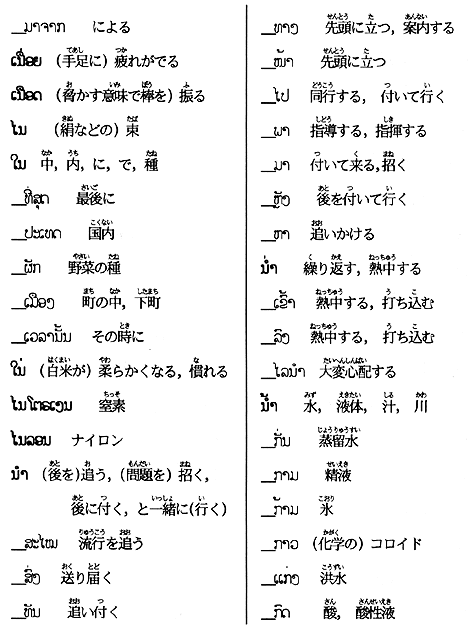 __ມາຈາກ による
ເໜື່ອຍ (手足に) 疲れがでる
ເໜືອດ (脅かす意味で棒を) 振る
ໄນ (絹などの) 束
ໃນ 中, 内, に, で, 種
__ທີ່ສຸດ 最後に
__ປະເທດ 国内
__ຜັກ 野菜の種
__ເມືອງ 町の中, 下町
__ເວລານັ້ນ その時に
ໃນ່ (白米が) 柔らかくなる, 慣れる
ໄນໂຕຣເຈນ 窒素
ໄນລອນ ナイロン
ນຳ (後を)追う, (問題を) 招く,
後に付く, と一緒に(行く)
__ສະໄໝ 流行を追う
__ສົ່ງ 送り届く
__ທັນ 追い付く
__ທາງ 先頭に立つ, 案内する
__ໜ້າ 先頭に立つ
__ໄປ 同行する, 付いて行く
__ພາ 指導する, 指揮する
__ມາ 付いて来る, 招く
__ຫຼັງ 後を付いて行く
__ຫາ 追いかける
ນ່ຳ 繰り返す, 熱中する
__ເຂົ້າ 熱中する, 打ち込む
__ລົງ 熱中する, 打ち込む
__ໄລນຳ 大変心配する
ນ້ຳ 水, 液体, 汁, 川
__ກັ່ນ 蒸留水
__ກາມ 精液
__ກ້າມ 氷
__ກາວ (化学の) コロイド
__ແກ່ງ 洪水
__ກົດ 酸, 酸性液